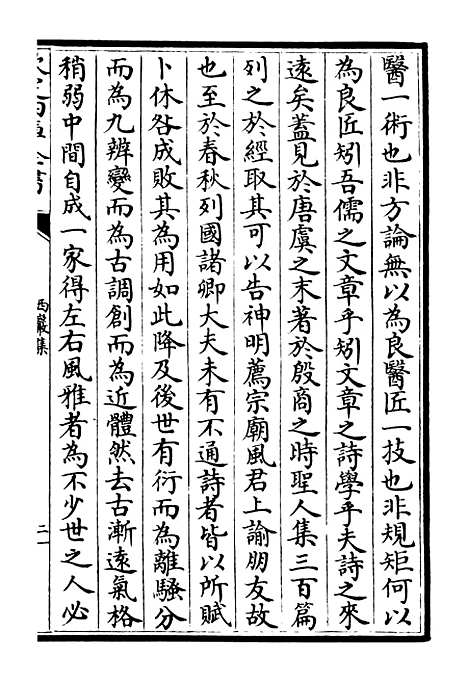 醫一術也非方論無以為良醫匠一技也非規矩何以
為良匠矧吾儒之文章乎矧文章之詩學乎夫詩之來
遠矣蓋見於唐虞之末著於殷商之時聖人集三百篇
列之於經取其可以告神明薦宗廟風君上諭朋友故
也至於春秋列國諸卿大夫未有不通詩者皆以所賦
卜休咎成敗其為用如此降及後世有衍而為離騷分
而為九辨變而為古調創而為近體然去古漸遠氣格
稍弱中間自成一家得左右風雅者為不少世之人必
欽定四庫全書
西巖集
二